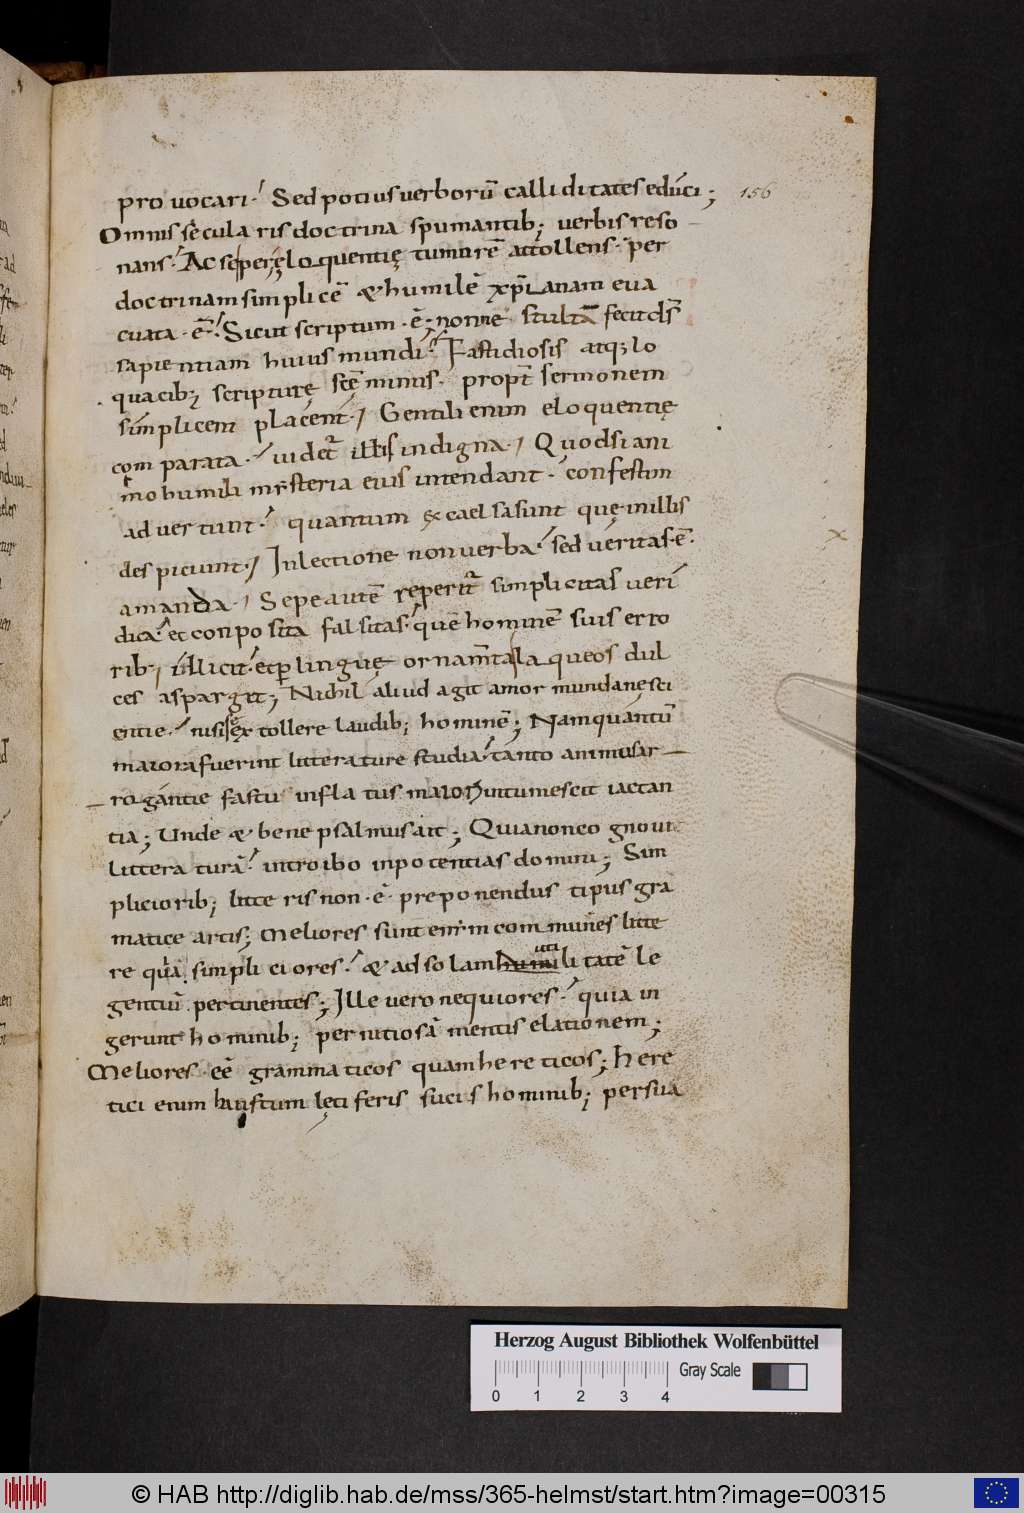 provocari. Sed potius verborū calliditates educi;
156
Omnis secularis doctrina spumantib; verbis reso
nans. Ac se per ęloquentię tumorē attollens. per
doctrinam simplicē & humilē xp̄ianam eua
cuata .ē. Sicut scriptum .ē; nonne stultā fecit ds̄
sapientiam huius mundi. Fastidiosis atq; lo
quacib; scripturę scę minus. propt̄ sermonem
simplicem placent. Gentili enim eloquentię
comparata. uidet̄ illis indigna. Quodsi ani
mo humili mysteria eius intendant. confestim
advertunt. quantum excaelsa sunt quę in illis
despiciunt. In lectione non verba. sed veritas .ē.
amanda. Sepe autē reperit̄ simplicitas veri
dica. et conposita falsitas. quē hominē suis erro
rib; illicit. et p linguę ornam̄ta laqueos dul
ces asparget; Nichil aliud agit amor mundanę sci
entie. nisi extollere laudib; hominē; Nam quantū
maiora fuerint litterature studia. tanto animus ar
rogantie fastu inflatus maiori intumescit iactan
tia; Unde & bene psalmus ait; Quia non cognoui
litteraturā. introibo in potentias domini; Sim
pliciorib; litteris non .ē. preponendus tipus gra
matice artis; Meliores sunt enim communes litte
re quā simpliciores. & ad solam humilitatē le
uti
gentiū pertinentes; Ille vero nequiores. quia in
gerunt hominib; pernitiosā mentis elationem;
Meliores .eē grammaticos quam hereticos; Here
tici enim haustum lętiferis sucis hominib; persua
Herzog August Bibliothek Wolfenbüttel
Gray Scale
0 1 2 3 4
© HAB http://diglib.hab.de/mss/365-helmst/start.htm?image=00315